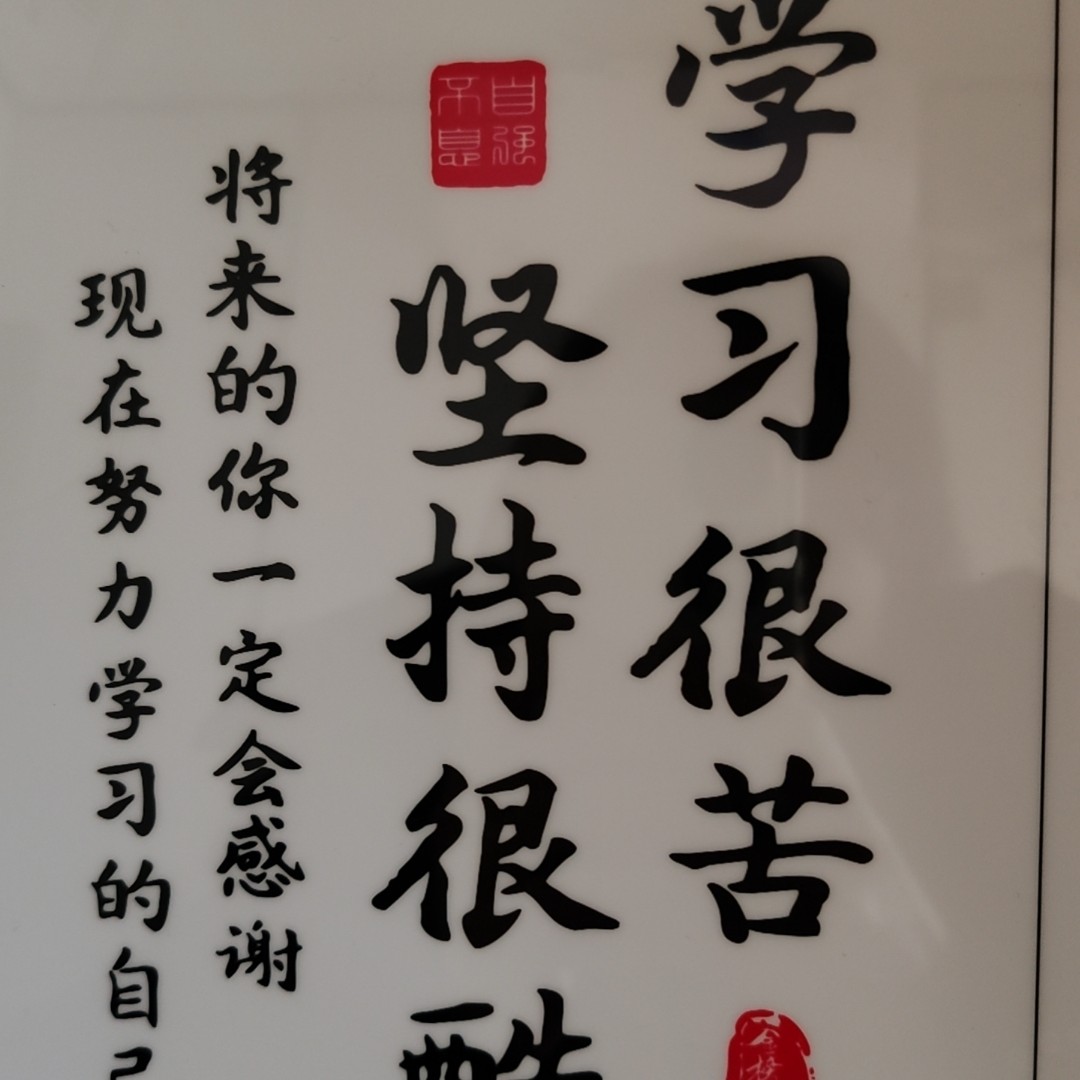 学习很苦
坚持很酷
自强不息
将来的你一定会感谢
现在努力学习的自己